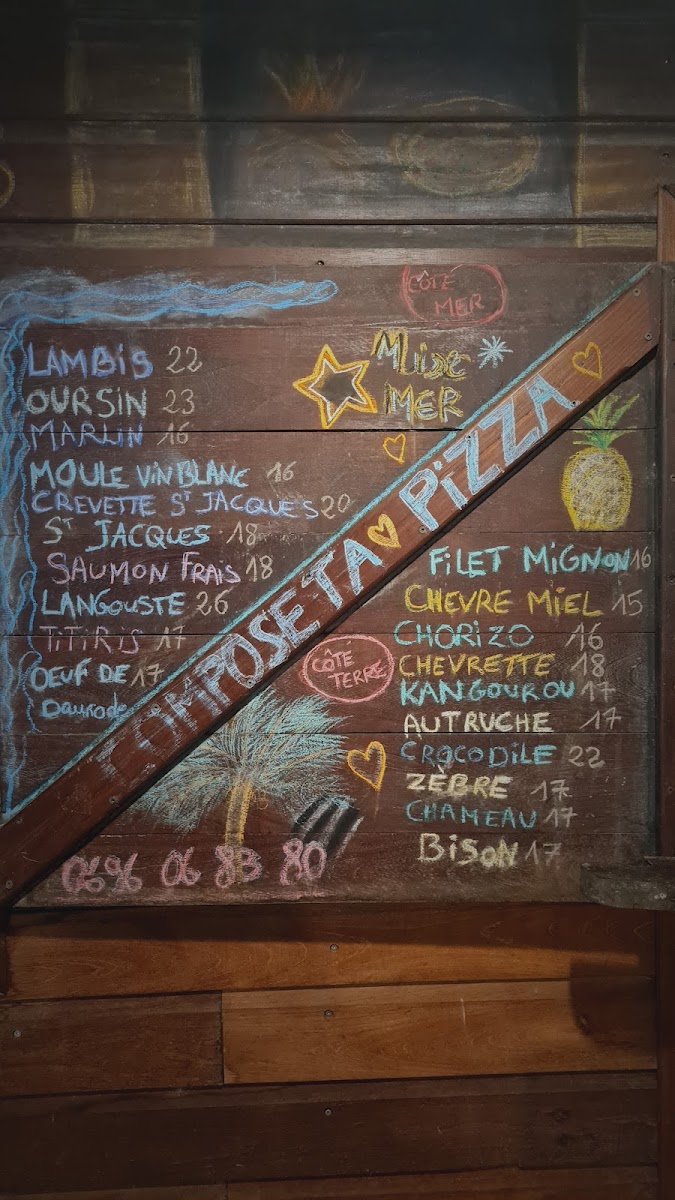 CÔTÉ
MER
MIXE
MER
LAMBIS 22
OURSIN 23
MARLIN 16
MOULE VIN BLANC 16
CREVETTE ST JACQUES 20
ST JACQUES 18
SAUMON FRAIS 18
LANGOUSTE 26
TITIRIS 17
OEUF DE 17
Daurade
COMPOSE TA PIZZA
CÔTE
TERRE
FILET MIGNON 16
CHEVRE MIEL 15
CHORIZO 16
CHEVRETTE 18
KANGOUROU 17
AUTRUCHE 17
CROCODILE 22
ZÈBRE 17
CHAMEAU 17
BISON 17
0696 06 83 80